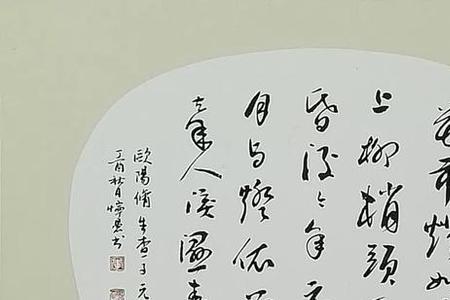 花市燈如
上柳梢頭
昏後今年元
月与燈依
去年人淚濕春
歐陽脩生查子元
丁酉秋月書